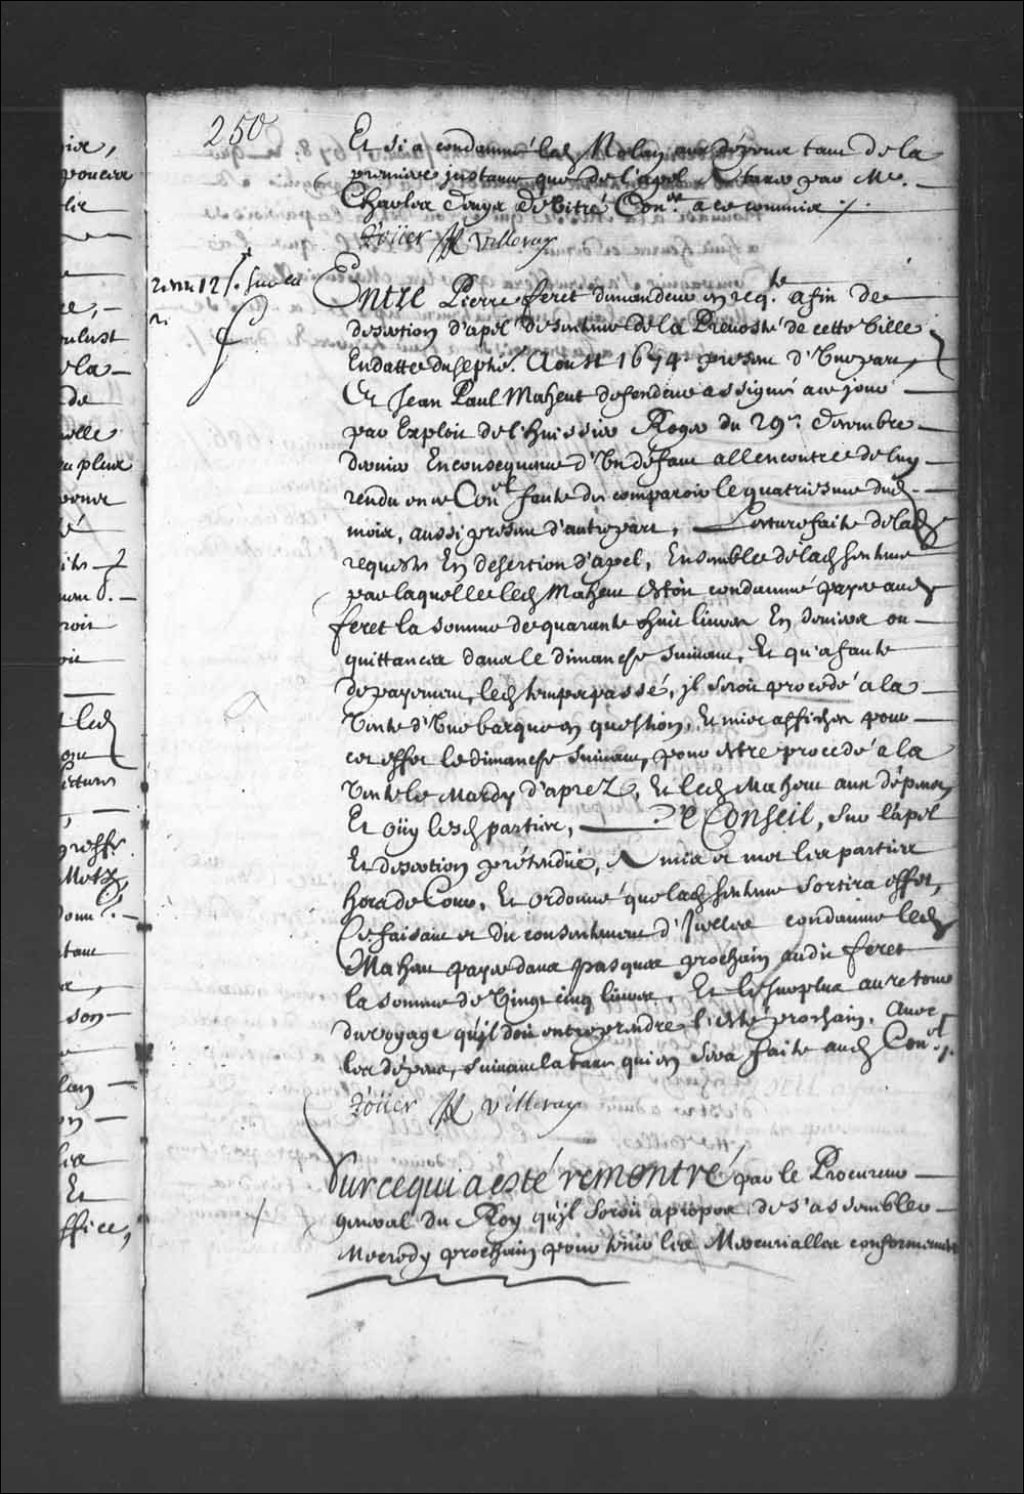 250
Et si a condamné lad Molay aux dépens tant de la
premiere instance que de l'apel A taxer par Me.
Charles Denys de Vitré Coner. a ce commis ./.
Rouer de Villeray
Entre Pierre feret demandeur en reqte. afin de
desertion d'apel de sentence de la Prevosté de cette Ville
En datte du septe. Aoust 1674 present d'Une part,
Et Jean Paul Maheut defendeur assigné a ce jour
par Exploit de l'huissier Roger du 29e. Decembre
dernier En consequence d'Un défaut allencontre de luy
rendu en ce Conel faute de comparoir le quatriesme dud
mois, aussi present d'autre part, Lecture faite de lad
requeste En desertion d'apel, Ensemble de lad sentence
par laquelle led Maheut Estoit condamné payer aud
feret la somme de quarante huit livres En deniers ou
quittances dans le dimanche suivant, Et qu'a faute
de payement, led temps passé, il seroit procedé a la
Vente d'Une barque en question, Et mises affiches pour
cet effet le dimanche suivant, pour estre procedé a la
Vente le Mardy d'aprez, Et led Maheut aux dépens,
Et oüy lesd parties, Le Conseil, sur l'apel
Et desertion prétendüe, A mis et met les parties
hors de Cour, Et ordonné que lad sentence sortira effet,
Ce faisant et du consentement d'Icelles condamne led
Maheut payer dans pasques prochain audit feret
la somme de Vingt cinq livres, Et le surplus au retour
du voyage qu'il doit entreprendre l'esté prochain, Avec
les dépens, suivant la taxe qui en sera faite aud Conel ./.
Rouer de Villeray
Sur ce qui a esté remontré par le Procureur
general du Roy qu'il seroit a propos de s'assembler
Mercredy prochain pour tenir les Mercurialles conformement